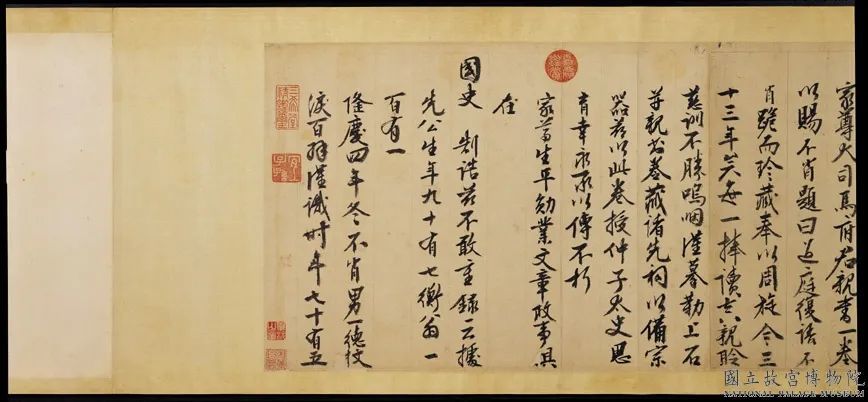 家尊大司馬府君親書一卷
以賜不肖題曰過庭復語不
肖跪而珍藏奉以周旋今三
十三年矣每一捧讀六親聆
慈訓不勝嗚咽謹摹勒上石
并親書卷藏諸先祠以備宗
器茲以此卷授仲子太史思
育幸永承以傳不朽
家尊生平勛業文章政事具
在
國史 制誥茲不敢重錄云據
先公生年九十有七衡翁一
百有一
隆慶四年冬不肖男一德抆
淚百拜謹識時年七十有五
國立故宮博物院
NATIONAL PALACE MUSEUM